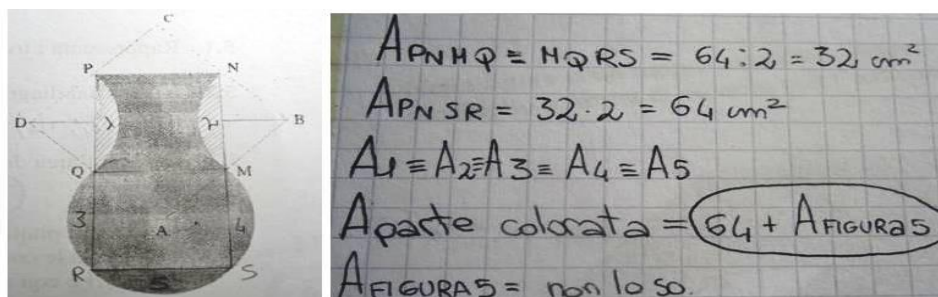 C
P N
D 1 2 B
Q M
3 A 4
R S
5
A PNMQ ≡ MQRS = 64 : 2 = 32 cm²
A PNSR = 32 · 2 = 64 cm²
A1 ≡ A2 ≡ A3 ≡ A4 ≡ A5
A parte colorata = 64 + A FIGURA 5
A FIGURA 5 = non lo so.